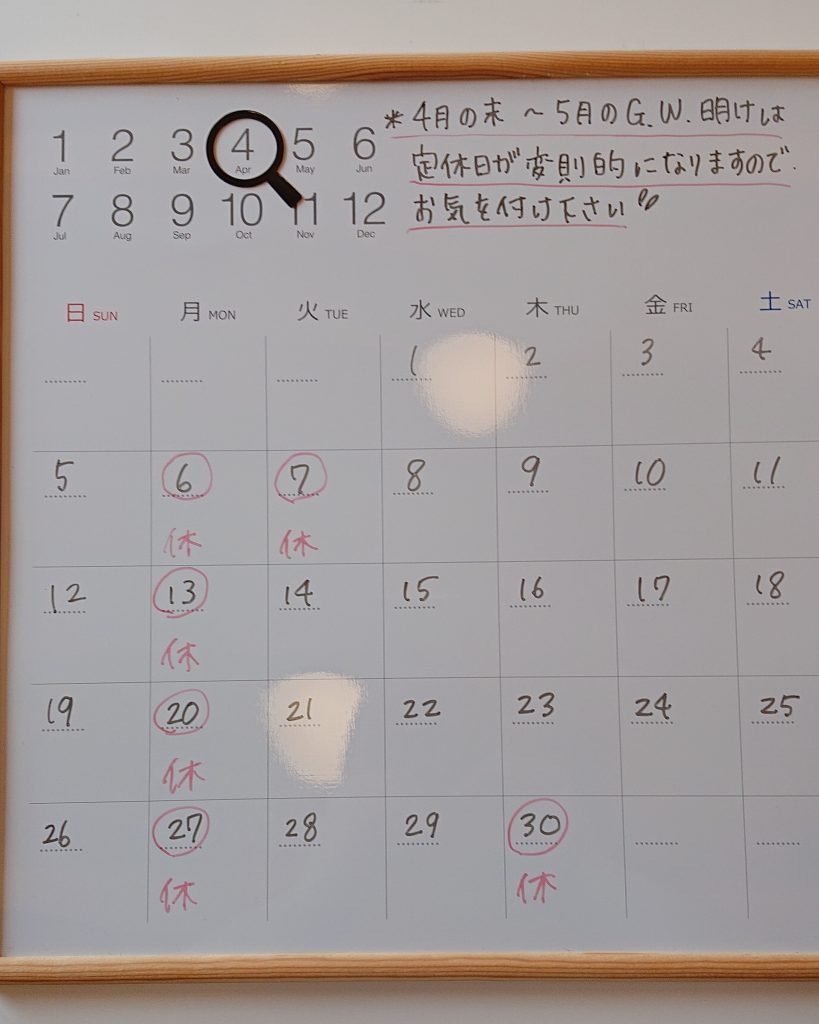 *4月の末 ～5月のG.W.明けは
定休日が変則的になりますので
お気を付け下さい
1 2 3 4 5 6
Jan Feb Mar Apr May Jun
7 8 9 10 11 12
Jul Aug Sep Oct Nov Dec
日 SUN 月 MON 火 TUE 水 WED 木 THU 金 FRI 土 SAT
1 2 3 4
5 6 7 8 9 10 11
休 休
12 13 14 15 16 17 18
休
19 20 21 22 23 24 25
休
26 27 28 29 30
休 休